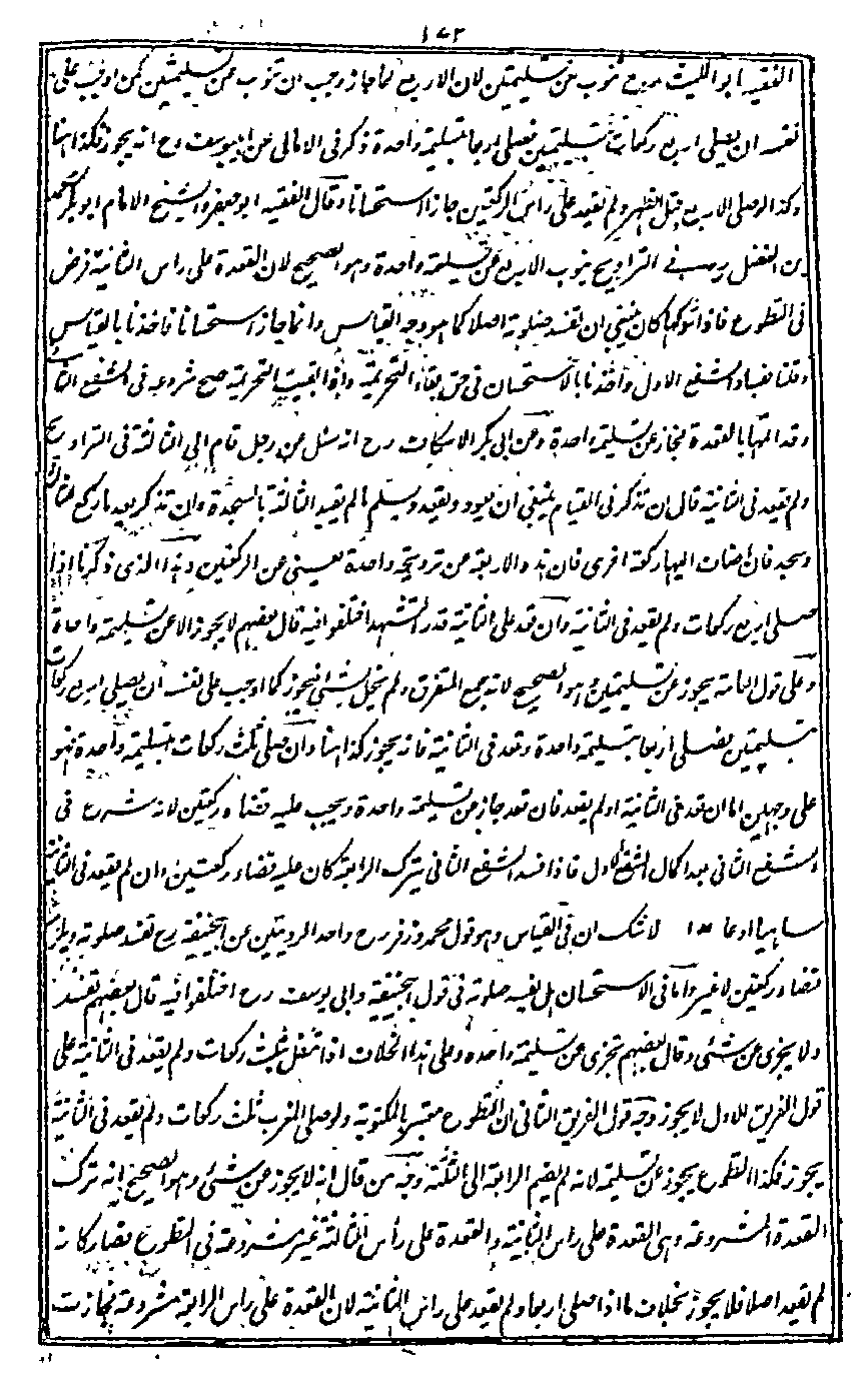 ١٤٢
الفقيه ابو الليث رح تنوب عن تسليمتين لان الاربع لما جاز وجب ان تنوب عن تسليمتين كمن اوجب على
نفسه ان يصلي اربع ركعات بتسليمتين فصلى اربعا بتسليمة واحدة ذكر في الامالي عن ابيوسف رح انه يجوز فكذا هنا
وكذا لو صلى الاربع قبل الظهر ولم يقعد على رأس الركعتين جاز استحسانا وقال الفقيه ابو جعفر والشيخ الامام ابو بكر محمد
بن الفضل رحمهما في التراويح ينوب الاربع عن تسليمة واحدة وهو الصحيح لان القعدة على راس الثانية فرض
في التطوع فاذا تركها كان ينبغي ان تفسد صلوته اصلا كما هو وجه القياس وانما جاز استحسانا فاخذنا بالقياس
وقلنا بفساد الشفع الاول واخذنا بالاستحسان في حق بقاء التحريمة واذا بقيت التحريمة صح شروعه في الشفع الثاني
وقد اتمها بالقعدة فجاز عن تسليمة واحدة وعن ابي بكر الاسكاف رح انه سئل عن رجل قام الى الثالثة في التراويح
ولم يقعد في الثانية قال ان تذكر في القيام ينبغي ان يعود ويقعد ويسلم ما لم يقيد الثالثة بالسجدة وان تذكر بعد ما ركع للثالثة
وسجد فان اضاف اليها ركعة اخرى فان هذه الاربعة عن ترويحة واحدة يعني عن الركعتين وهذا الذي ذكرنا اذا
صلى اربع ركعات ولم يقعد في الثانية وان قعد على الثانية قدر التشهد اختلفوا فيه قال بعضهم لا يجوز الا عن تسليمة واحدة
وعلى قول العامة يجوز عن تسليمتين وهو الصحيح لانه جمع المتفرق ولم يخل بشئ فيجوز كما اوجب على نفسه ان يصلي اربع ركعات
بتسليمتين فصلى اربعا بتسليمة واحدة وقعد في الثانية فانه يجوز كذا هنا وان صلى ثلث ركعات بتسليمة واحدة فهو
على وجهين اما ان قعد في الثانية او لم يقعد فان قعد جاز عن تسليمة واحدة ويجب عليه قضاء ركعتين لانه شرع في
الشفع الثاني بعد اكمال الشفع الاول فاذا فسد الشفع الثاني بترك الرابعة كان عليه قضاء ركعتين وان لم يقعد في الثانية
ساهيا او عامدا لا شك ان في القياس وهو قول محمد وزفر رح واحد الروايتين عن ابيحنيفة رح تفسد صلوته ويلزمه
قضاء ركعتين لا غير واما في الاستحسان هل تفسد صلوته في قول ابيحنيفة وابي يوسف رح اختلفوا فيه قال بعضهم تفسد
ولا يجزى عن شئ وقال بعضهم تجزى عن تسليمة واحدة وعلى هذا الخلاف اذا تنفل بثلث ركعات ولم يقعد في الثانية على
قول الفريق الاول لا يجوز وجه قول الفريق الثاني ان التطوع معتبر بالمكتوبة ولو صلى المغرب ثلث ركعات ولم يقعد في الثانية
يجوز فكذا التطوع يجوز عن تسليمة لانه لم يضم الرابعة الى الثلثة وجه من قال انه لا يجوز عن شئ وهو الصحيح انه ترك
القعدة المشروعة وهي القعدة على راس الثانية والقعدة على رأس الثالثة غير مشروعة في التطوع فصار كانه
لم يقعد اصلا فلا يجوز بخلاف ما اذا صلى اربعا ولم يقعد على راس الثانية لان القعدة على راس الرابعة مشروعة فجازت